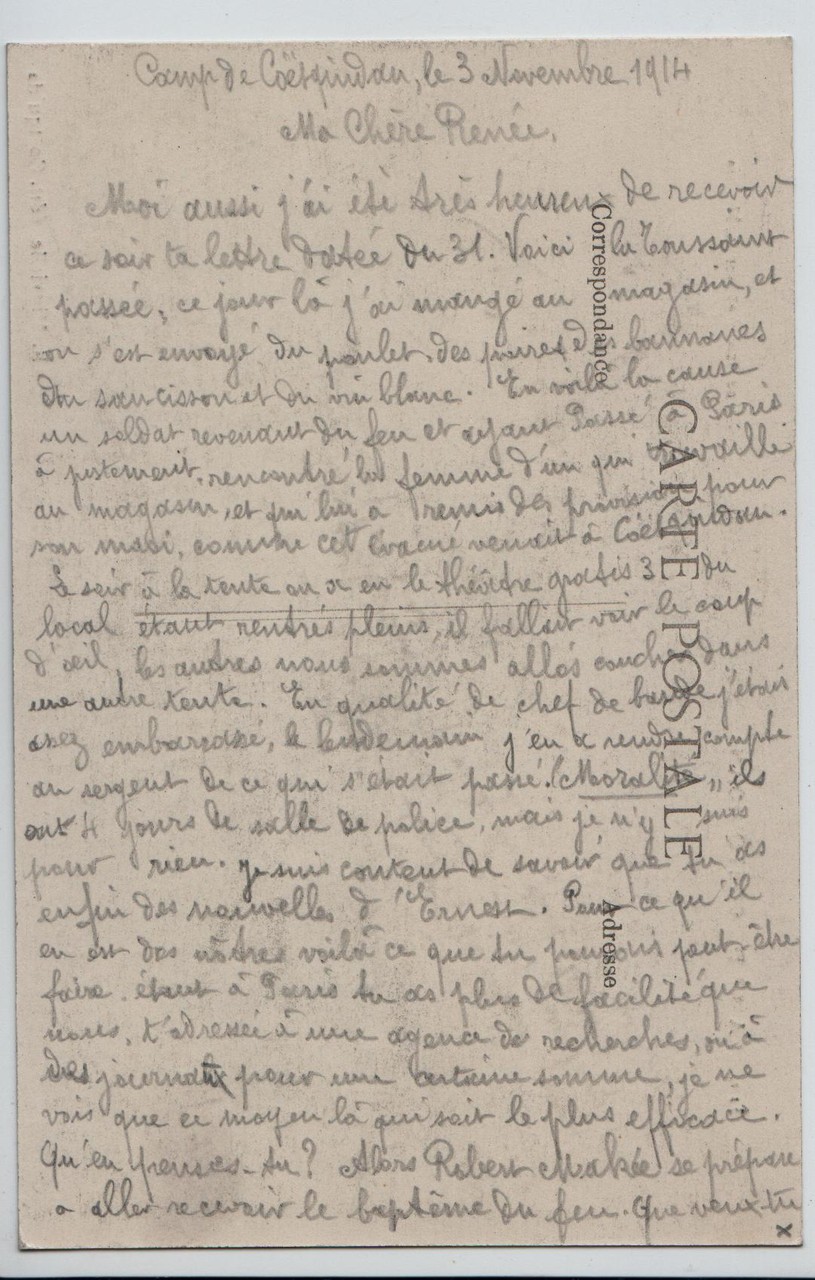 Camp de Coëtquidan, le 3 Novembre 1914
Ma Chère Renée,
Moi aussi j'ai été très heureux de recevoir
ce soir ta lettre datée du 31. Voici la Toussaint
passée, ce jour là j'ai mangé au magasin, et
on s'est envoyé du poulet, des poires des bannanes
du saucisson et du vin blanc. En voilà la cause
un soldat revenant du feu et ayant Passé à Paris
à justement, rencontré la femme d'un qui travaille
au magasin, et qui lui a remis des provisions pour
son mari, comme cet évacué venait à Coëtquidan.
Le soir à la tente on a eu le théâtre gratis 3 du
local étant rentrés pleins, il fallait voir le coup
d'œil, les autres nous sommes allés coucher dans
une autre tente. En qualité de chef de bande j'étais
assez embarassé, le lendemain j'en a rendu compte
au sergent de ce qui s'était passé. "Moralité" ils
ont 4 jours de salle de police, mais je n'y suis
pour rien. Je suis content de savoir que tu as
enfin des nouvelles d'Ernest. Pour ce qu'il
en est des nôtres voilà ce que tu pourrais peut-être
faire étant à Paris tu as plus de facilité que
nous, t'adressée à une agence de recherches, ou à
des journaux pour une certaine somme, je ne
vois que ce moyen là qui soit le plus efficace.
Qu'en penses-tu? Alors Robert Makée se prépare
a aller recevoir le baptême du feu. Que veux-tu
x
Correspondance
CARTE POSTALE
Adresse